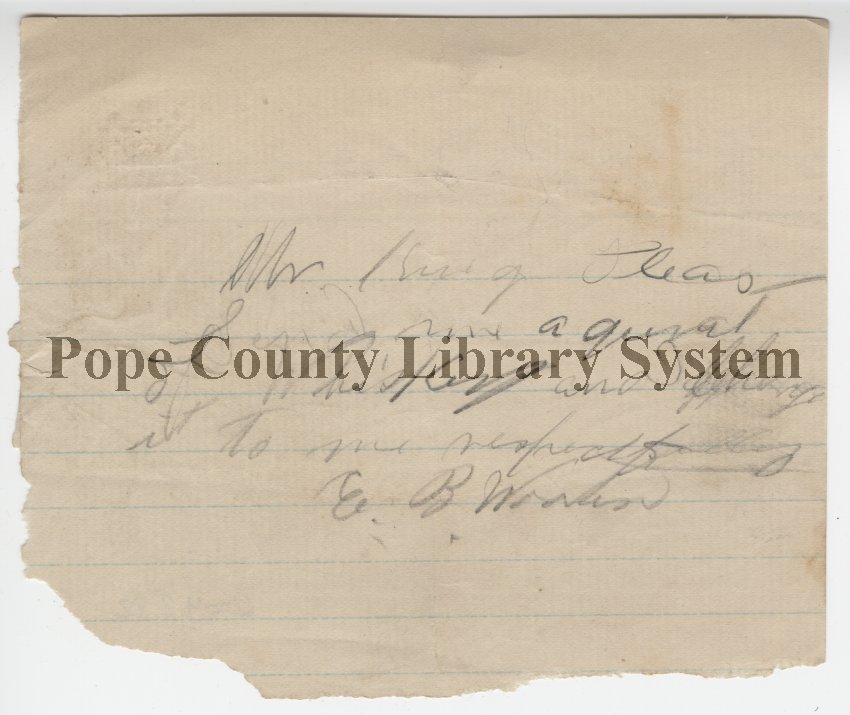 Mr King Pleas
Send me a qurat
of Whiskey and
it to me respectfully
E. B.
Pope County Library System